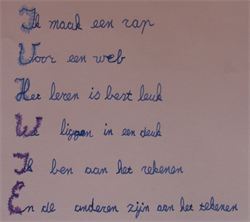 Ik maak een rap
Voor een web
Het leren is best leuk
We liggen in een deuk
Ik ben aan het rekenen
En de anderen zijn aan het tekenen